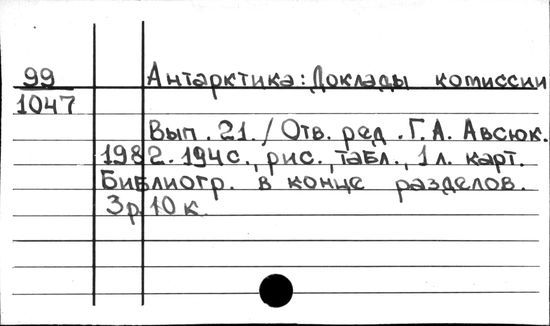 99 Антарктика: Доклады комиссии
1047
Вып. 21. / Отв. ред. Г. А. Авсюк.
1982. 194 с., рис., табл., 1 л. карт.
Библиогр. в конце разделов.
3 р. 10 к.